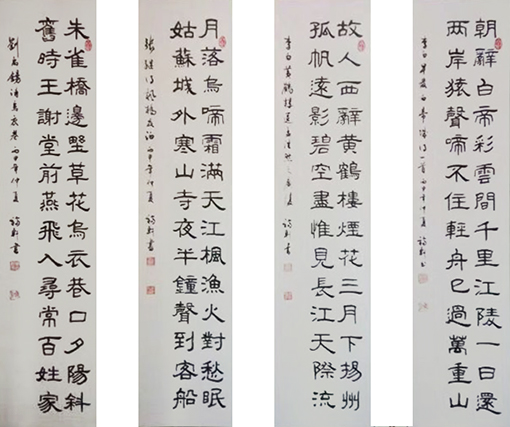 朝辭白帝彩雲間千里江陵一日還
兩岸猿聲啼不住輕舟已過萬重山
李白早發白帝城詩一首丙申年仲夏
故人西辭黃鶴樓煙花三月下揚州
孤帆遠影碧空盡惟見長江天際流
李白黃鶴樓送孟浩然之廣陵
月落烏啼霜滿天江楓漁火對愁眠
姑蘇城外寒山寺夜半鐘聲到客船
張繼詩楓橋夜泊丙申年仲夏
朱雀橋邊野草花烏衣巷口夕陽斜
舊時王謝堂前燕飛入尋常百姓家
劉禹錫詩烏衣巷丙申年仲夏